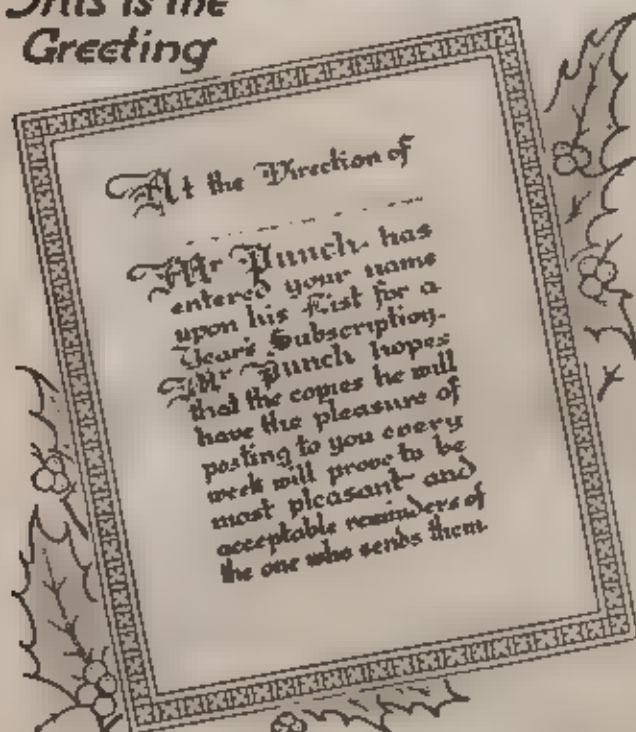 This is the
Greeting
At the Direction of
Mr Punch has
entered your name
upon his List for a
Year's Subscription.
Mr Punch hopes
that the copies he will
have the pleasure of
posting to you every
week will prove to be
most pleasant and
acceptable reminders of
the one who sends them.